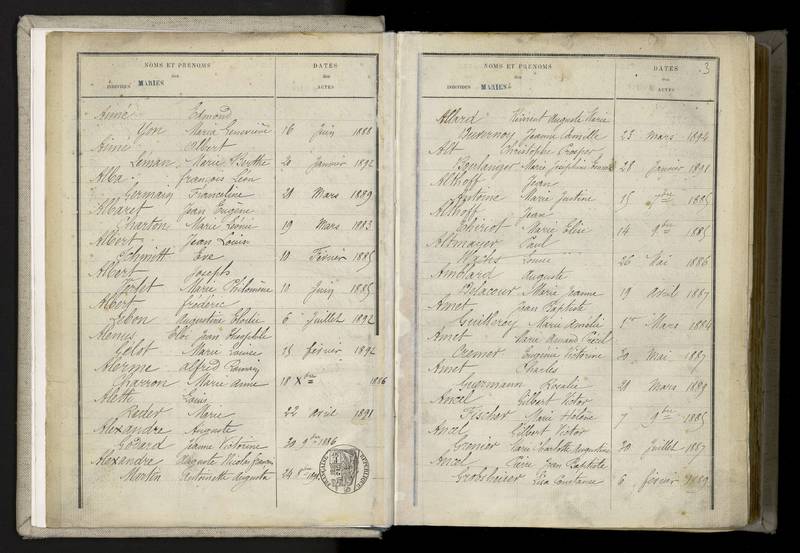 NOMS ET PRENOMS DATES
des des
INDIVIDUS MARIÉS ACTES
Anné Edmond
Yon Maria Geneviève 16 Juin 1888
Aimé Albert
Leman Marie Berthe 20 Janvier 1892
Alba François Léon
Germain Franceline 28 Mars 1889
Albaret Jean Eugène
Charton Marie Léonie 19 Mars 1883
Albert Jean Louis
Schmitt Eve 10 Février 1885
Albert Joseph
Ferlet Marie Philomène 10 Juin 1885
Albert Frédéric
Lebon Augustine Elodie 6 Juillet 1892
Eloi Jean Théophile
Golot Marie Louise 25 février 1892
Alerme Alfred
Charron Marie Anne 18 Xbre 1886
Aletti Louis
Rader Marie 22 avril 1891
Alexandre Auguste
Godard Jeanne Victorine 20 9bre 1886
Alexandre Auguste Nicolas
Martin Antoinette Augusta 24
3
NOMS ET PRENOMS DATES
des des
INDIVIDUS MARIÉS ACTES
Allard Vincent Auguste Marie
Duvernoy Jeanne Camille 23 Mars 1894
Alt Christophe Prosper
Boulanger Marie Joséphine 28 Janvier 1891
Althoff Jean
Antoine Marie Justine 15 1885
Althoff Jean
Thiriot Marie Elise 14 9bre 1885
Altmayer Paul
Louise 26 Mai 1886
Amblard Auguste
Delacour Marie Jeanne 19 avril 1887
Amet Jean Baptiste
Guilleroy Marie Amélie 1er Mars 1884
Amet Marie Armand Cécil
Cremer Eugénie Victorine 20 Mai 1887
Amet Charles
Guermann Rosalie 28 Mars 1889
Ancel Gilbert Victor
Fischer Marie Hélène 7 9bre 1885
Ancel Gilbert Victor
Gronier Marie Charlotte Augustine 20 Juillet 1887
Ancel Pierre Jean Baptiste
Lisa Constance 6 février 1889